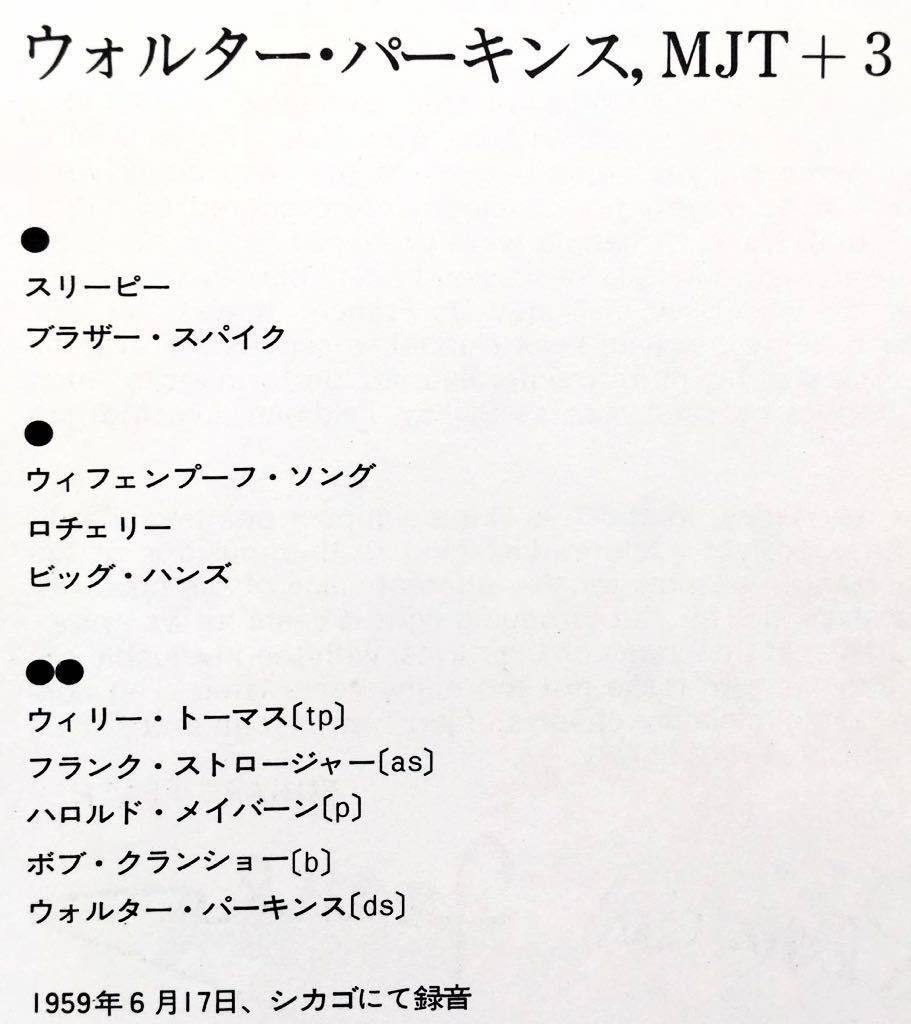 ウォルター・パーキンス, MJT＋3
●
スリーピー
ブラザー・スパイク
●
ウィフェンプーフ・ソング
ロチェリー
ビッグ・ハンズ
●●
ウィリー・トーマス〔tp〕
フランク・ストロージャー〔as〕
ハロルド・メイバーン〔p〕
ボブ・クランショー〔b〕
ウォルター・パーキンス〔ds〕
1959年6月17日、シカゴにて録音